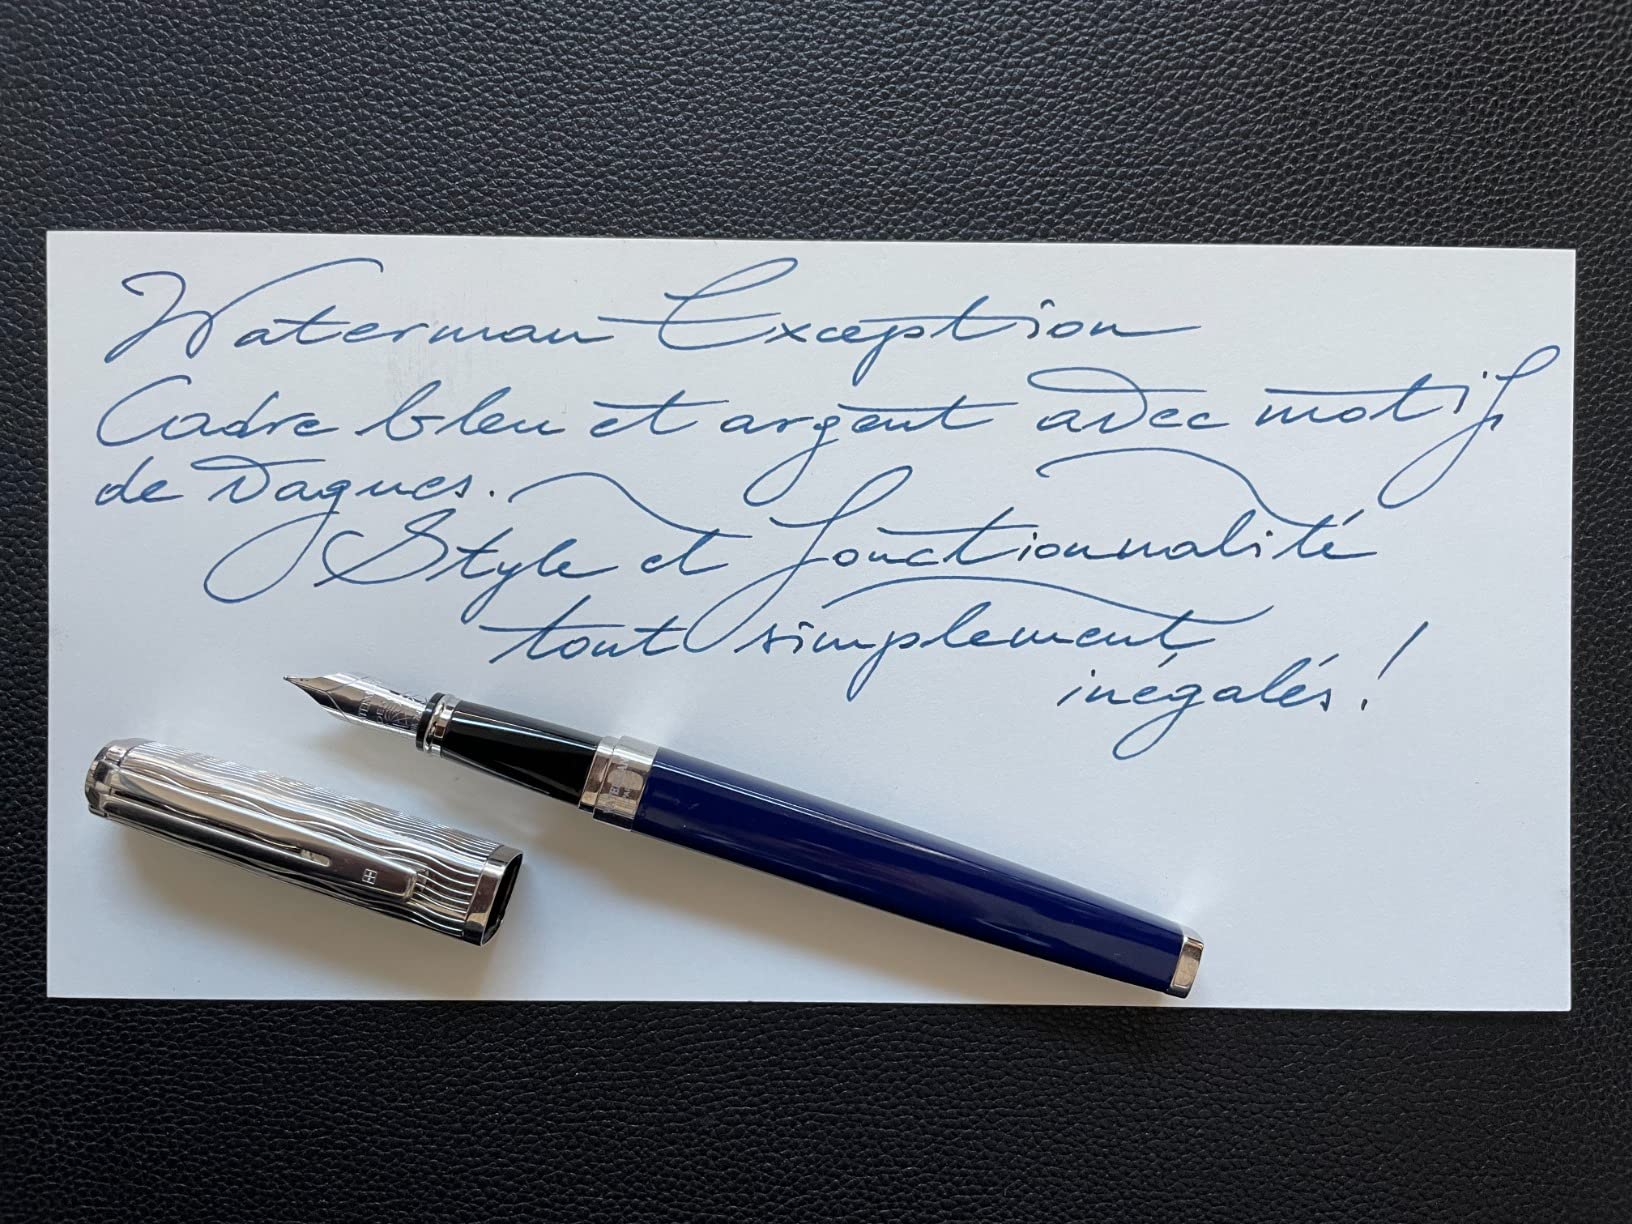 Waterman Exception
Cadre bleu et argent avec motif
de Vagues.
Style et fonctionnalité
tout simplement
inégalés!